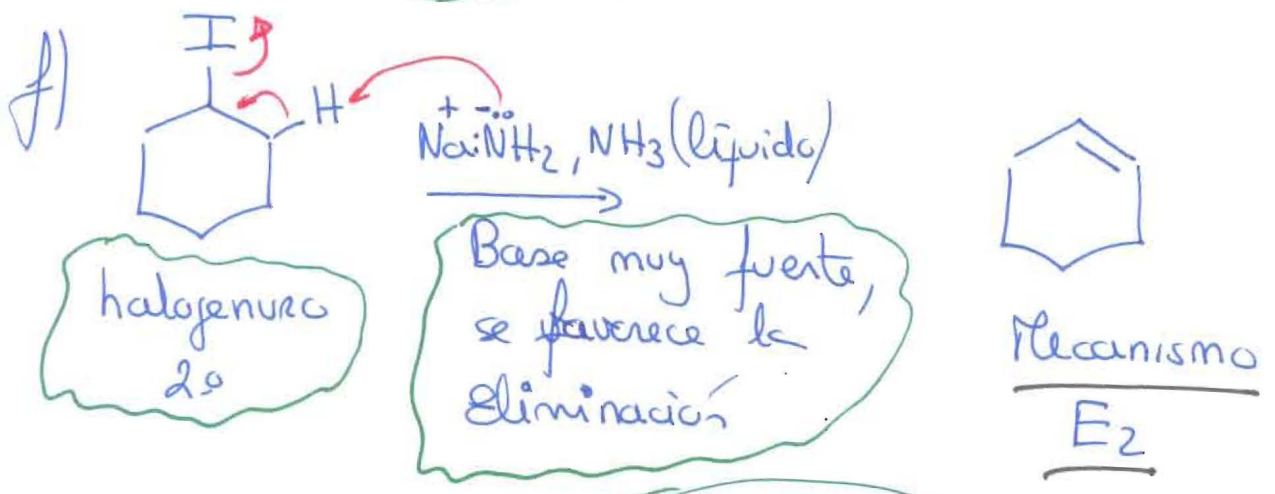 f)
I
H
+ -
Na :NH2, NH3 (líquido)
halogenuro
2º
Base muy fuerte,
se favorece la
Eliminación
Mecanismo
E2